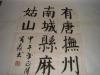 有唐撫州
南城縣麻
姑山